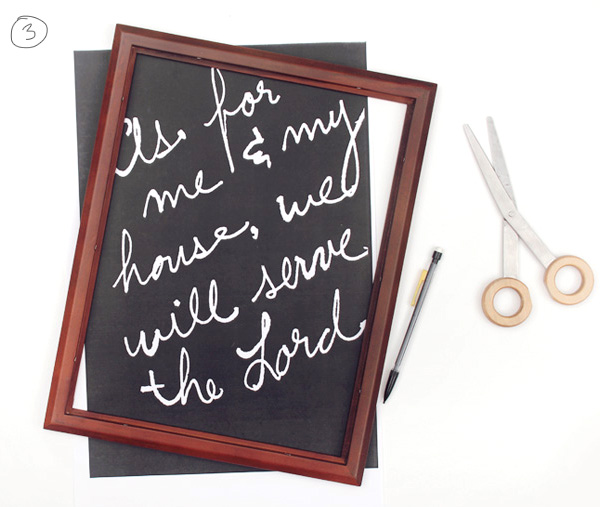 3
As for
me & my
house, we
will serve
the Lord